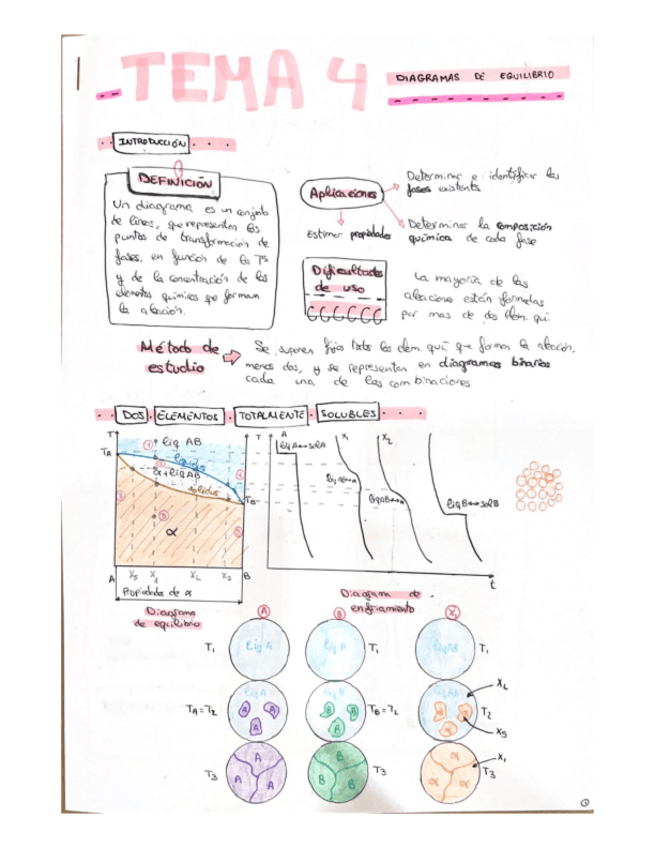 TEMA 4
DIAGRAMAS DE EQUILIBRIO
INTRODUCCIÓN
DEFINICIÓN
Un diagrama es un conjunto
de líneas, que representan los
puntos de transformación de
fases, en función de la Tª
y de la concentración de los
elementos químicos que forman
la aleación.
Aplicaciones
Determinar e identificar las
fases existentes
Estimar propiedades
Determinar la composición
química de cada fase
Dificultades
de uso
La mayoría de las
aleaciones están formadas
por mas de dos elem. qui
Método de
estudio
Se suponen fijos todos los elem. quí que forman la aleación,
menos dos, y se representan en diagramas binarios
cada una de las combinaciones
DOS ELEMENTOS TOTALMENTE SOLUBLES
T
TA
liq AB
liquidus
α+liqAB
solidus
TB
α
A
X5
X1
XL
X2
B
Propiedades de α
Diagrama
de equilibrio
T
A
X1
X2
liqA↔solA
liqAB↔α
liqAB↔α
liqB↔solB
t
Diagrama de
enfriamiento
A
B
X1
T1
liq A
liq A
T1
liqAB
T1
TA=T2
liqA
A
A
A
liq B
B
B
B
TB=T2
liqAB
α
α
α
XL
T2
XS
T3
A
A
A
B
B
B
T3
α
α
α
X1
T3